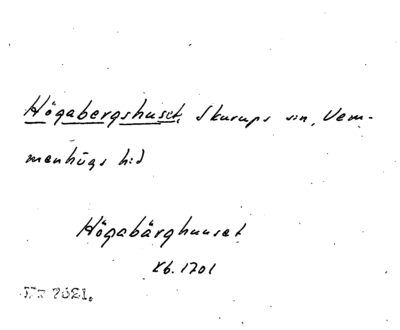 Högabergshuset, Skurups sn, Vem-
menhögs hd
Högabärghuuset
Kb. 1701